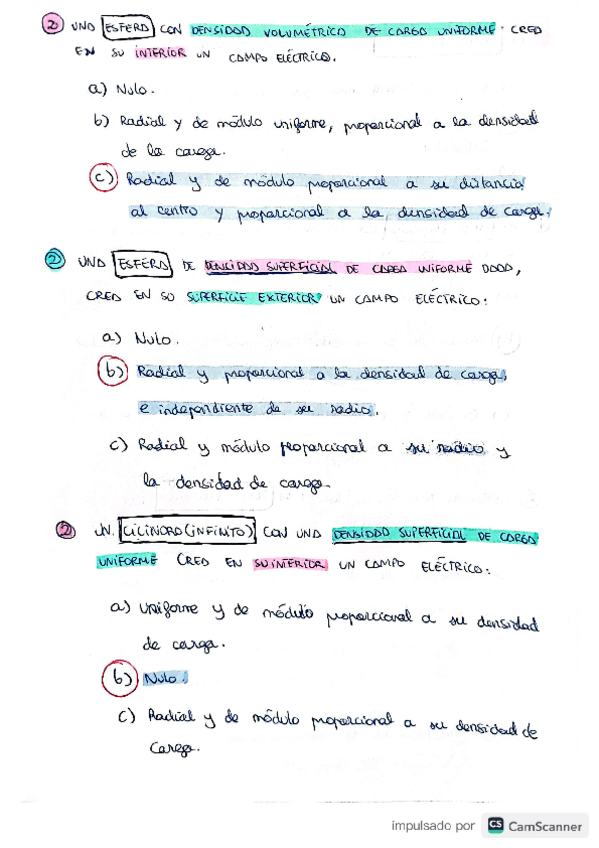 2) UNA ESFERA CON DENSIDAD VOLUMÉTRICA DE CARGA UNIFORME CREA
EN SU INTERIOR UN CAMPO ELÉCTRICO.
a) Nulo.
b) Radial y de módulo uniforme, proporcional a la densidad
de la carga.
c) Radial y de módulo proporcional a su distancia
al centro y proporcional a la densidad de carga.
2) UNA ESFERA DE DENSIDAD SUPERFICIAL DE CARGA UNIFORME DADA,
CREA EN SO SUPERFICIE EXTERIOR UN CAMPO ELÉCTRICO:
a) Nulo.
b) Radial y proporcional a la densidad de carga,
e independiente de su radio.
c) Radial y módulo proporcional a su radio y
la densidad de carga.
2) UN CILINDRO (INFINITO) CON UNA DENSIDAD SUPERFICIAL DE CARGA
UNIFORME CREA EN SU INTERIOR UN CAMPO ELÉCTRICO:
a) Uniforme y de módulo proporcional a su densidad
de carga.
b) Nulo.
c) Radial y de módulo proporcional a su densidad de
carga.
impulsado por CS CamScanner